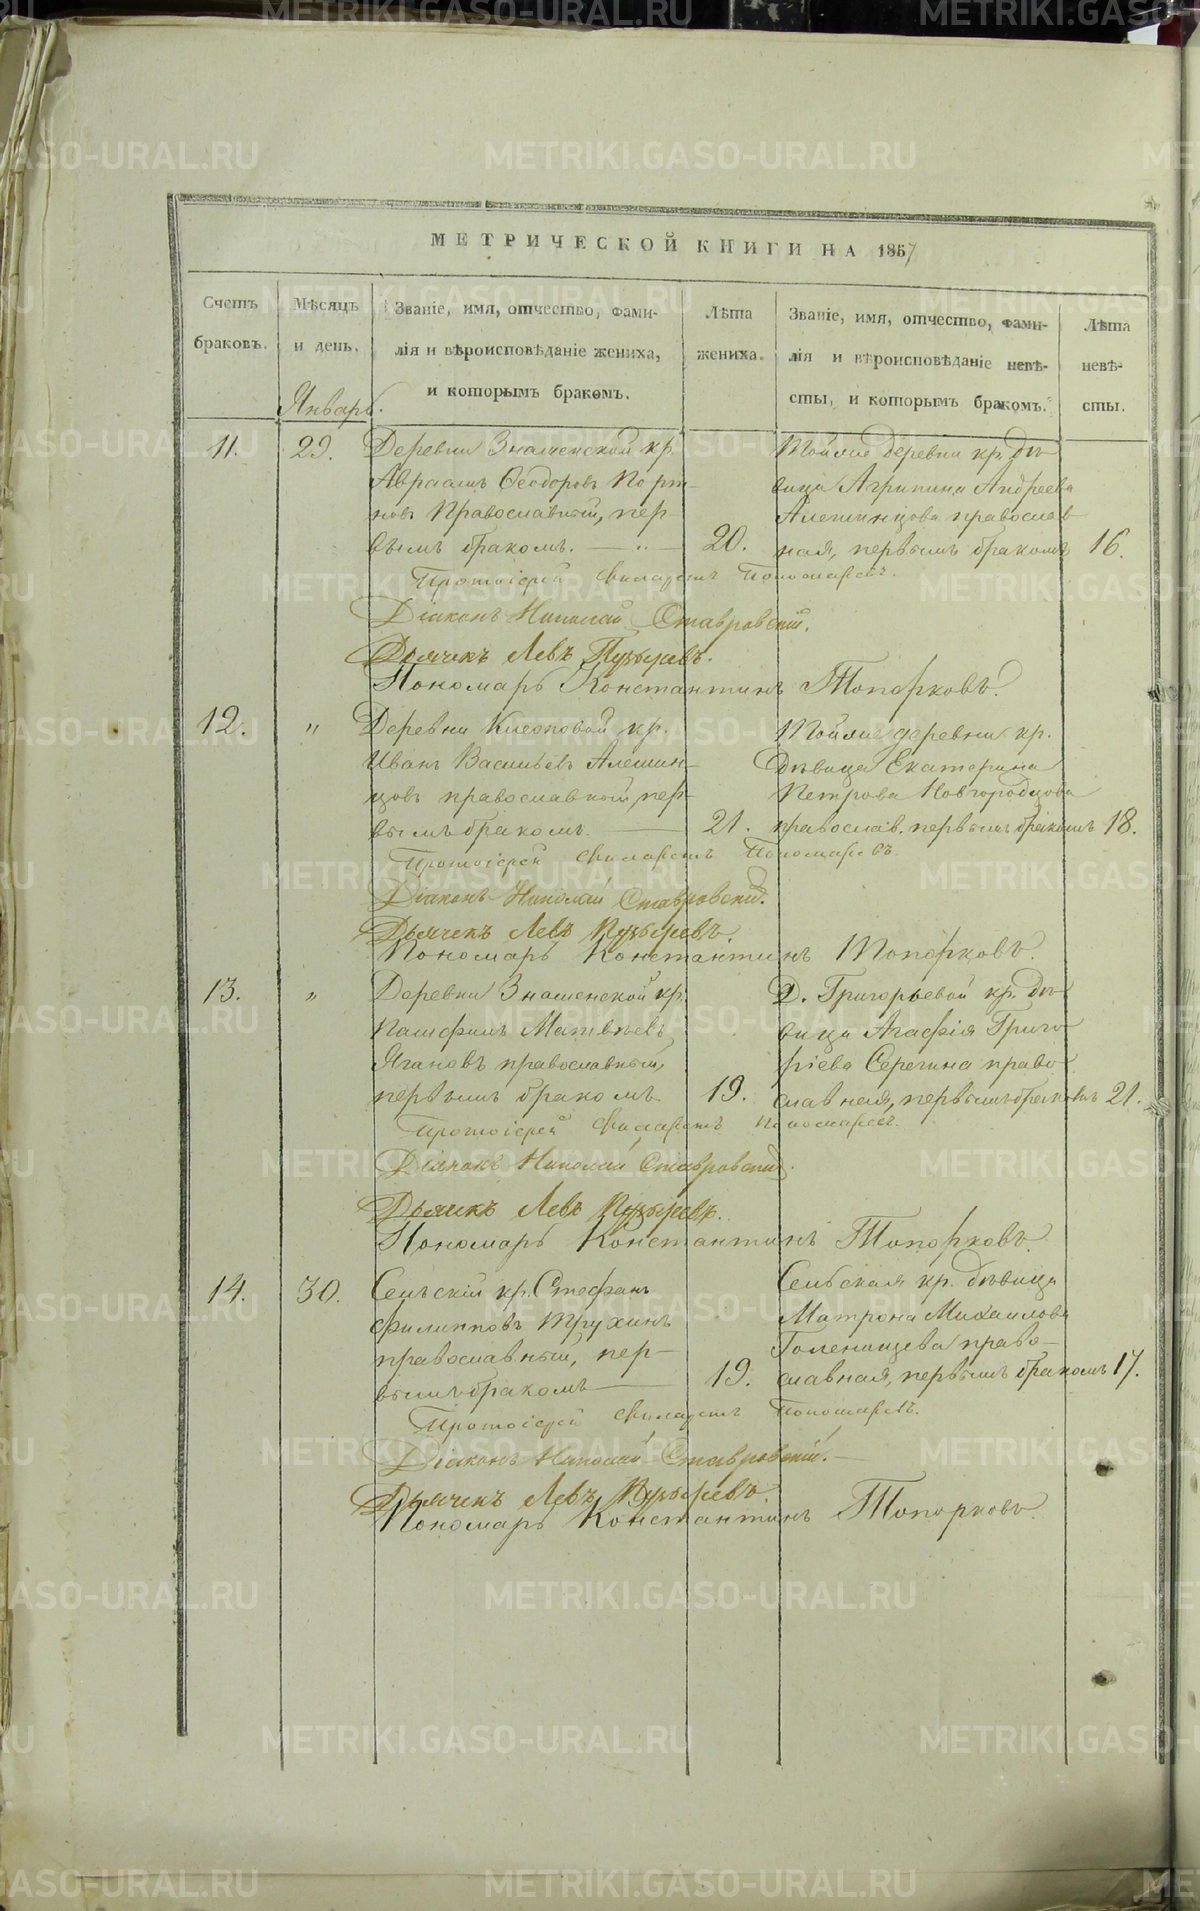 МЕТРИЧЕСКОЙ КНИГИ НА 1857
Счетъ браковъ.
Мѣсяцъ и день.
Званіе, имя, отчество, фами-
лія и вѣроисповѣданіе жениха,
и которымъ бракомъ.
Лѣта жениха.
Званіе, имя, отчество, фами-
лія и вѣроисповѣданіе невѣ-
сты, и которымъ бракомъ.
Лѣта невѣ-
сты.
Январь.
11. 29.
Деревни Знаменской кр.
Авраамъ Ѳеодоровъ Порт-
новъ Православный, пер-
вымъ бракомъ. — „ — 20.
Тойже деревни кр. дѣ-
вица Агрипина Андреева
Алешинцова православ
ная, первымъ бракомъ 16.
Протоіерей Филаретъ Пономаревъ.
Діаконъ Николай Ставровскій.
Дьячекъ Левъ Пузыревъ.
Пономарь Константинъ Топорковъ.
12. „
Деревни Клеоповой кр.
Иванъ Васильевъ Алешин-
цовъ православный, пер-
вымъ бракомъ. — 21.
Тойже деревни кр.
дѣвица Екатерина
Петрова Новгородцова
православ. первымъ бракомъ 18.
Протоіерей Филаретъ Пономаревъ.
Діаконъ Николай Ставровскій.
Дьячекъ Левъ Пузыревъ.
Пономарь Константинъ Топорковъ.
13. „
Деревни Знаменской кр.
Памфилъ Матвѣевъ
Ягановъ православный,
первымъ бракомъ 19.
Д. Григорьевой кр. дѣ-
вица Агафія Григо-
ріева Серегина право
славная, первымъ бракомъ 21.
Протоіерей Филаретъ Пономаревъ.
Діаконъ Николай Ставровскій.
Дьячекъ Левъ Пузыревъ.
Пономарь Константинъ Топорковъ.
14. 30.
Сельскій кр. Стефанъ
Филипповъ Трухинъ
православный, пер-
вымъ бракомъ — 19.
Сельская кр. дѣвица
Матрона Михаилова
Голенищева право-
славная, первымъ бракомъ 17.
Протоіерей Филаретъ Пономаревъ.
Діаконъ Николай Ставровскій. —
Дьячекъ Левъ Пузыревъ.
Пономарь Константинъ Топорковъ.
METRIKI.GASO-URAL.RU